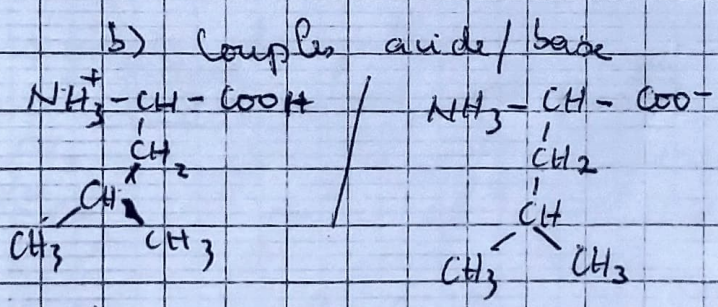 b) Couples acide/base
NH₃⁺-CH-COOH / NH₃-CH-COO⁻
CH₂ CH₂
CH CH
CH₃ CH₃ CH₃ CH₃